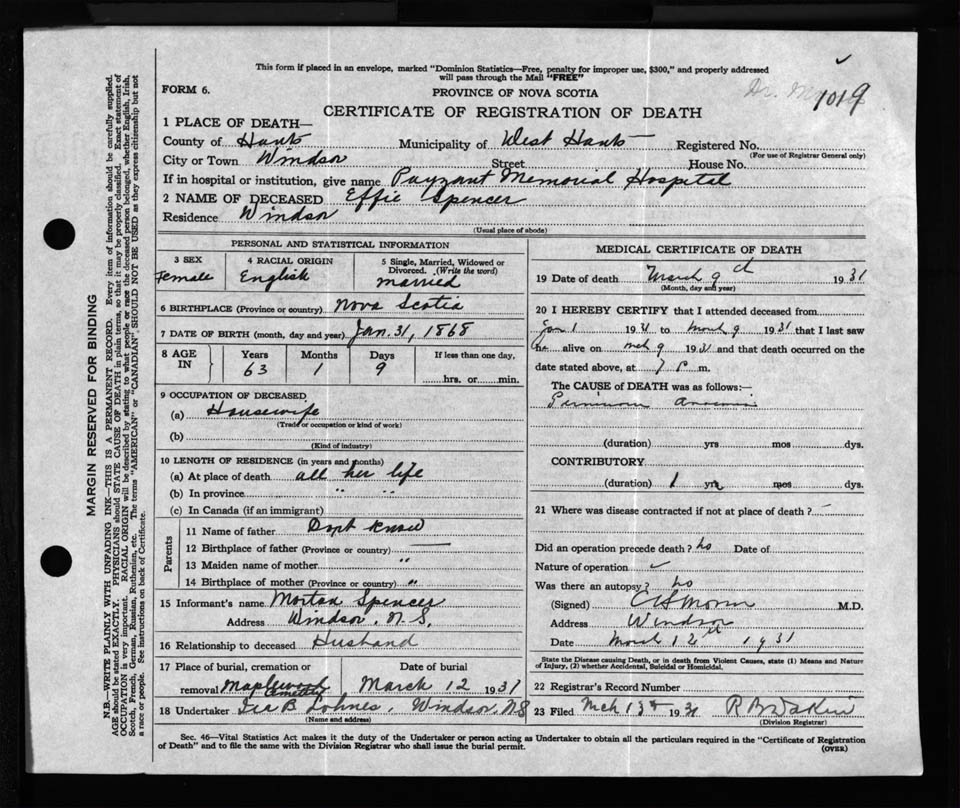 This form if placed in an envelope, marked "Dominion Statistics—Free, penalty for improper use, $300," and properly addressed
will pass through the Mail "FREE"
FORM 6.
PROVINCE OF NOVA SCOTIA
1019
CERTIFICATE OF REGISTRATION OF DEATH
1 PLACE OF DEATH—
County of Hants Municipality of West Hants Registered No.
(For use of Registrar General only)
City or Town Windsor Street House No.
If in hospital or institution, give name Payzant Memorial Hospital
2 NAME OF DECEASED Effie Spencer
Residence Windsor
(Usual place of abode)
PERSONAL AND STATISTICAL INFORMATION
3 SEX 4 RACIAL ORIGIN 5 Single, Married, Widowed or
Divorced. (Write the word)
Female English married
6 BIRTHPLACE (Province or country) Nova Scotia
7 DATE OF BIRTH (month, day and year) Jan. 31, 1868
8 AGE IN Years Months Days If less than one day,
63 1 9 hrs. or min.
9 OCCUPATION OF DECEASED
(a) Housewife
(Trade or occupation or kind of work)
(b)
(Kind of industry)
10 LENGTH OF RESIDENCE (in years and months)
(a) At place of death all her life
(b) In province " "
(c) In Canada (if an immigrant)
Parents
11 Name of father Dont know
12 Birthplace of father (Province or country) —
13 Maiden name of mother "
14 Birthplace of mother (Province or country) "
15 Informant's name Morton Spencer
Address Windsor, N.S.
16 Relationship to deceased Husband
17 Place of burial, cremation or Date of burial
removal Maplewood Cemetery March 12 1931
18 Undertaker Ira B Lohnes, Windsor NS
(Name and address)
MEDICAL CERTIFICATE OF DEATH
19 Date of death March 9th 1931
(Month, day and year)
20 I HEREBY CERTIFY that I attended deceased from
Jan 1 1931 to March 9 1931 that I last saw
h alive on Mch 9 1931 and that death occurred on the
date stated above, at 7 P. m.
The CAUSE OF DEATH was as follows:—
(duration) yrs mos dys.
CONTRIBUTORY
(duration) 1 yrs mos dys.
21 Where was disease contracted if not at place of death? —
Did an operation precede death? no Date of
Nature of operation
Was there an autopsy? no
(Signed) M.D.
Address Windsor
Date March 12th 1931
State the Disease causing Death, or in death from Violent Causes, state (1) Means and Nature
of Injury, (2) whether Accidental, Suicidal or Homicidal.
22 Registrar's Record Number
23 Filed Mch 13th 1931
(Division Registrar)
Sec. 46—Vital Statistics Act makes it the duty of the Undertaker or person acting as Undertaker to obtain all the particulars required in the "Certificate of Registration
of Death" and to file the same with the Division Registrar who shall issue the burial permit.
(OVER)
MARGIN RESERVED FOR BINDING
N.B.—WRITE PLAINLY WITH UNFADING INK—THIS IS A PERMANENT RECORD. Every item of information should be carefully supplied.
AGE should be stated EXACTLY. PHYSICIANS should STATE CAUSE OF DEATH in plain terms, so that it may be properly classified. Exact statement of
OCCUPATION is very important. RACIAL ORIGIN will be described by stating to what people or race the deceased person belonged, whether English, Irish,
Scotch, French, German, Russian, Ruthenian, etc. The terms "AMERICAN" or "CANADIAN" SHOULD NOT BE USED as they express citizenship but not
a race or people. See instructions on back of Certificate.